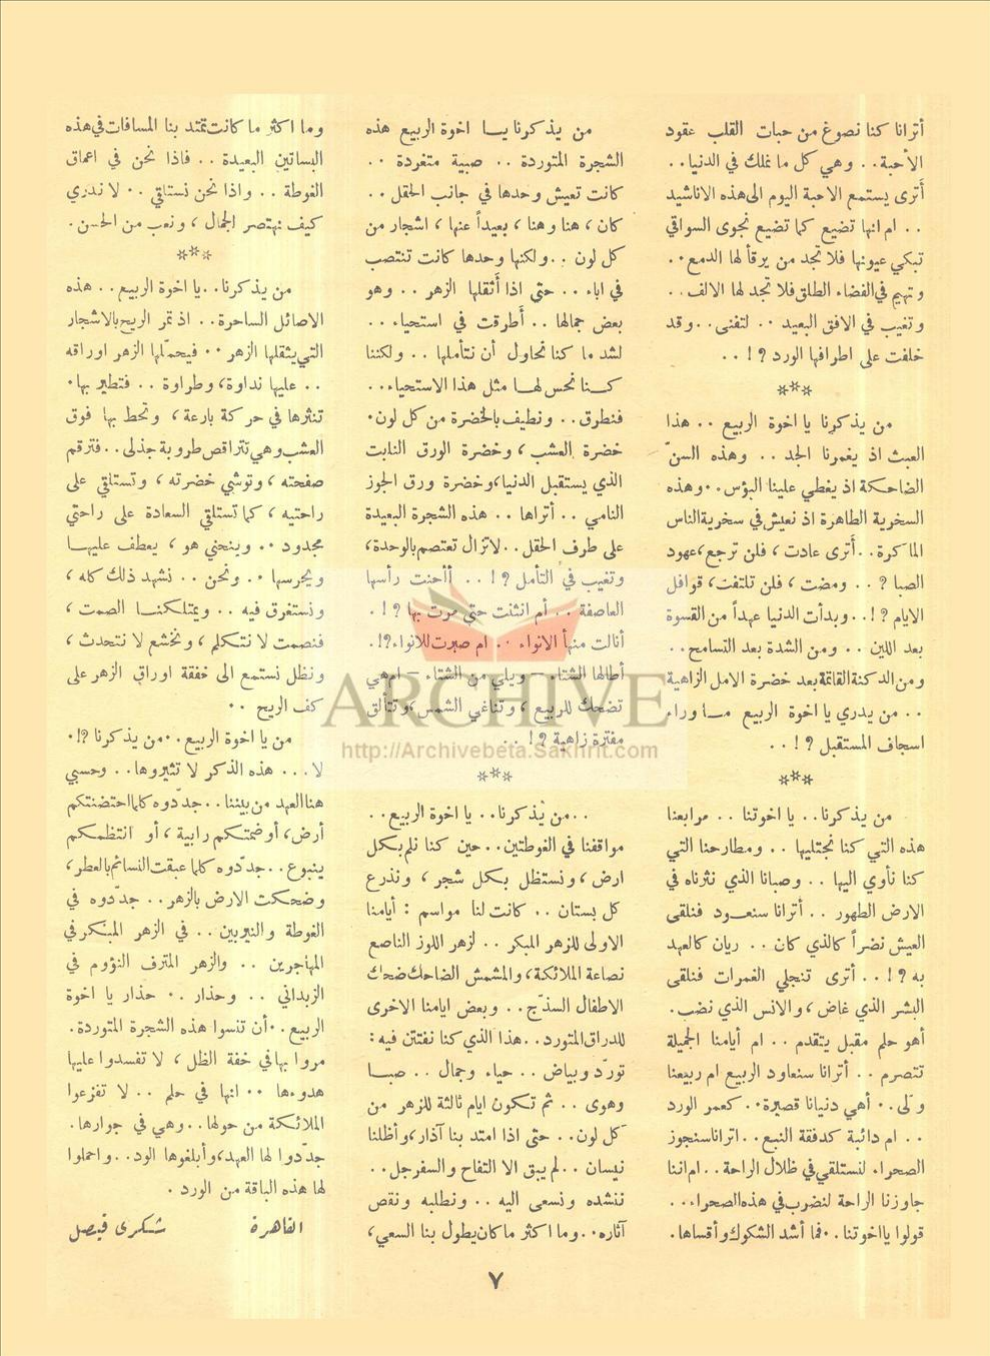 أترانا كنا نصوغ من حبات القلب عقود
الأحبة.. وهي كل ما نملك في الدنيا..
أترى يستمع الاحبة اليوم الى هذه الاناشيد
.. ام انها تضيع كما تضيع نجوى السواقي
تبكي عيونها فلا تجد من يرقأ لها الدمع..
وتهيم في الفضاء الطلق فلا تجد لها الالف..
وتغيب في الافق البعيد .. لتفنى.. وقد
خلفت على اطرافها الورد ?! ..
***
من يذكرنا يا اخوة الربيع .. هذا
العبث اذ يغمرنا الجد .. وهذه السنّ
الضاحكة اذ يغطي علينا البؤس.. وهذه
السخرية الطاهرة اذ نعيش في سخرية الناس
الماكرة.. أترى عادت، فلن ترجع، عهود
الصبا ? .. ومضت، فلن تلتفت، قوافل
الايام ?! .. وبدأت الدنيا عهداً من القسوة
بعد اللين .. ومن الشدة بعد التسامح..
ومن الدكنة القاتمة بعد خضرة الامل الزاهية
.. من يدري يا اخوة الربيع مـا وراء
اسجاف المستقبل ?! ..
***
من يذكرنا.. يا اخوتنا .. مرابعنا
هذه التي كنا نجتليها .. ومطارحنا التي
كنا نأوي اليها .. وصبانا الذي نثرناه في
الارض الطهور .. أترانا سنعود فنلقى
العيش نضراً كالذي كان .. ريان كالعهد
به ?! .. أترى تنجلي الغمرات فنلقى
البشر الذي غاض، والانس الذي نضب.
أهو حلم مقبل يتقدم .. ام أيامنا الجميلة
تتصرم .. أترانا سنعاود الربيع ام ربيعنا
ولى.. أهي دنيانا قصيرة.. كعمر الورد
.. ام دائبة كدفقة النبع.. اترانا سنجوز
الصحراء لنستلقي في ظلال الراحة.. ام اننا
جاوزنا الراحة لنضرب في هذه الصحراء...
قولوا يا اخوتنا.. فما أشد الشكوك وأقساها.
من يذكرنا يـا اخوة الربيع هذه
الشجرة المتوردة .. صبية متغردة ..
كانت تعيش وحدها في جانب الحقل ..
كان، هنا وهنا، بعيداً عنها، اشجار من
كل لون .. ولكنها وحدها كانت تنتصب
في اباء... حتى اذا أثقلها الزهر .. وهو
بعض جمالها .. أطرقت في استحياء...
لشد ما كنا نحاول أن نتأملها .. ولكننا
كـنا نحس لهـا مثل هذا الاستحياء...
فنطرق.. ونطيف بالخضرة من كل لون.
خضرة العشب، وخضرة الورق النابت
الذي يستقبل الدنيا، وخضرة ورق الجوز
النامي .. أتراها .. هذه الشجرة البعيدة
على طرف الحقل.. لا تزال تعتصم بالوحدة،
وتغيب في التأمل ?! .. أأحنت رأسها
العاصفة .. أم انثنت حتى مرت بها ?! .
أنالت منها الانواء .. ام صبرت للانواء.?!
أطالها الشتاء - ويلي من الشتاء - ام هي
تضحك للربيع، وتناغي الشمس، وتتألق
مفترة زاهية ?! ..
***
.. من يذكرنا.. يا اخوة الربيع..
مواقفنا في الغوطتين.. حين كنا نلم بكل
ارض، ونستظل بكل شجر، ونذرع
كل بستان .. كانت لنا مواسم : أيامنا
الاولى للزهر المبكر .. لزهر اللوز الناصع
نصاعة الملائكة، والمشمش الضاحك ضحك
الاطفال السذّج .. وبعض ايامنا الاخرى
للدراق المتورد.. هذا الذي كنا نفتتن فيه :
تورّد وبياض .. حياء وجمال .. صبـا
وهوى .. ثم تكون ايام ثالثة للزهر من
كل لون.. حتى اذا امتد بنا آذار، وأظلنا
نيسان .. لم يبق الا التفاح والسفرجل..
ننشده ونسعى اليه .. ونطلبه ونقص
آثاره.. وما اكثر ما كان يطول بنا السعي،
وما اكثر ما كانت تمتد بنا المسافات في هذه
البساتين البعيدة .. فاذا نحن في اعماق
الغوطة .. واذا نحن نستلقي .. لا ندري
كيف نهتصر الجمال، ونعب من الحسن.
***
من يذكرنا.. يا اخوة الربيع.. هذه
الاصائل الساحرة.. اذ تمر الريح بالاشجار
التي يثقلها الزهر .. فيحمّلها الزهر اوراقه
.. عليها نداوة، وطراوة .. فتطير بها.
تنثرها في حركة بارعة، وتحط بها فوق
العشب وهي تتراقص طروبة جذلى.. فترقم
صفحته، وتوشي خضرته، وتستلقي على
راحتيه، كما تستلقي السعادة على راحتي
مجدود .. وينحني هو، يعطف عليهـا
ويحرسها .. ونحن .. نشهد ذلك كله،
ونستغرق فيه .. ويمتلكنـا الصمت،
فنصمت لا نتكلم، ونخشع لا نتحدث،
ونظل نستمع الى خفقة اوراق الزهر على
كف الريح ..
من يا اخوة الربيع.. من يذكرنا ?!.
لا... هذه الذكر لا تثيروها.. وحسبي
هنا العهد من بيننا.. جدّدوه كلما احتضنتكم
أرض، أو ضمتكم رابية، أو انتظمكم
ينبوع.. جدّدوه كلما عبقت النسائم بالعطر،
وضحكت الارض بالزهر.. جدّدوه في
الغوطة والنيربين .. في الزهر المبكر في
المهاجرين .. والزهر المترف النؤوم في
الزبداني .. وحذار .. حذار يا اخوة
الربيع.. أن تنسوا هذه الشجرة المتوردة.
مروا بها في خفة الظل، لا تفسدوا عليها
هدوءها .. انها في حلم .. لا تفزعوا
الملائكة من حولها.. وهي في جوارها.
جدّدوا لها العهد، وأبلغوها الود.. واحملوا
لها هذه الباقة من الورد.
القاهرة شكري فيصل
٧
ARCHIVE
http://Archivebeta.Sakhrit.com